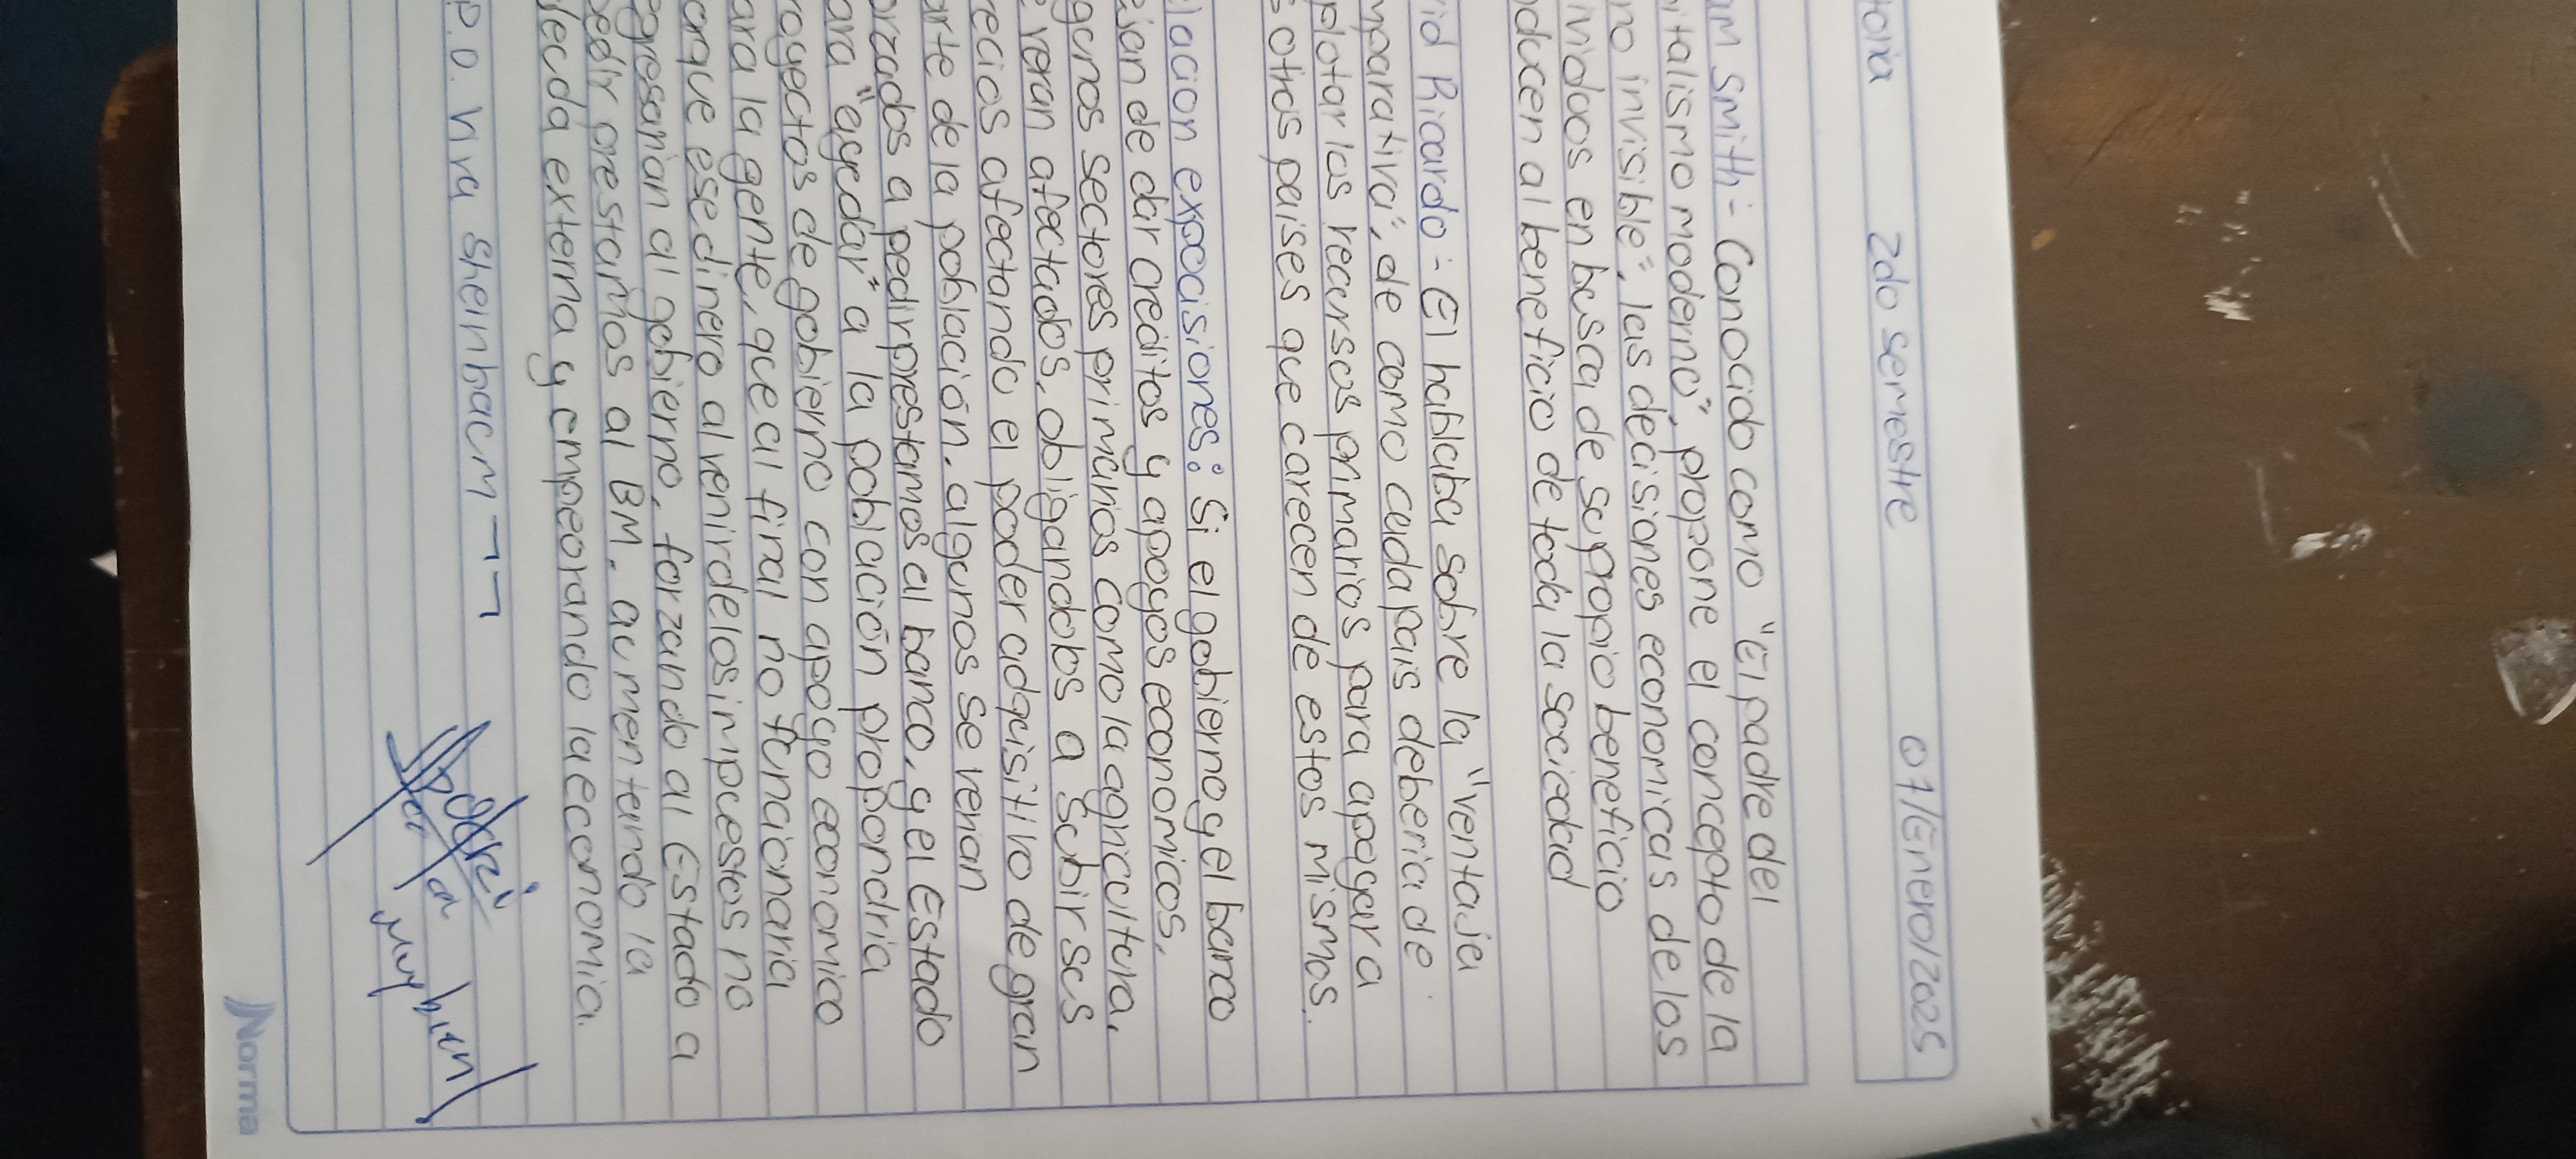 toria 2do semestre 07/Enero/2025
am Smith- Conocido como "El padre del
italismo moderno", propone el concepto de la
no invisible", las decisiones economicas de los
ividuos en busca de su propio beneficio
oducen al beneficio de toda la sociedad
vid Ricardo- El hablaba sobre la "ventaja
mparativa", de como cada pais deberia de
plotar los recursos primarios para apoyar a
s otros paises que carecen de estos mismos.
lacion expocisiones: Si el gobierno y el banco
ejan de dar creditos y apoyos economicos,
gunos sectores primarios como la agricultura,
e veran afectados, obligandolos a subir sus
recios afectando el poder adquisitivo de gran
arte de la población. algunos se verian
orzados a pedir prestamos al banco, y el Estado
ara "ayudar" a la población propondria
royectos de gobierno con apoyo economico
ara la gente, que al final no funcionaria
orque ese dinero al venir de los impuestos no
egresarian al gobierno, forzando al Estado a
pedir prestamos al BM. aumentando la
deuda externa y empeorando la economia.
P.D. Viva Sheinbaum ¬¬
muy bien
Norma